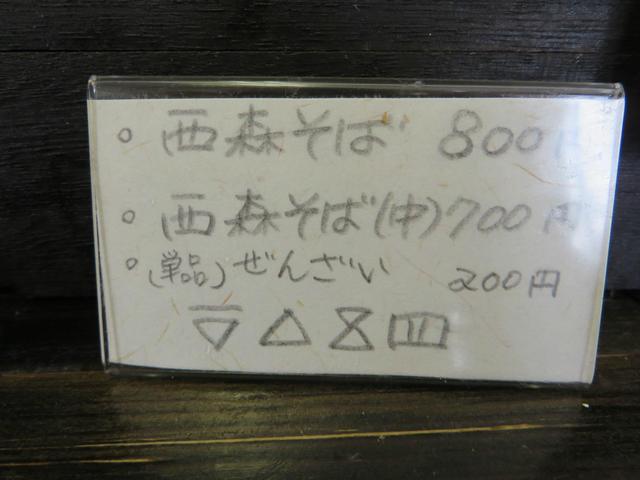 ○ 西森そば 800円
○ 西森そば(中)700円
○ (単品)ぜんざい 200円